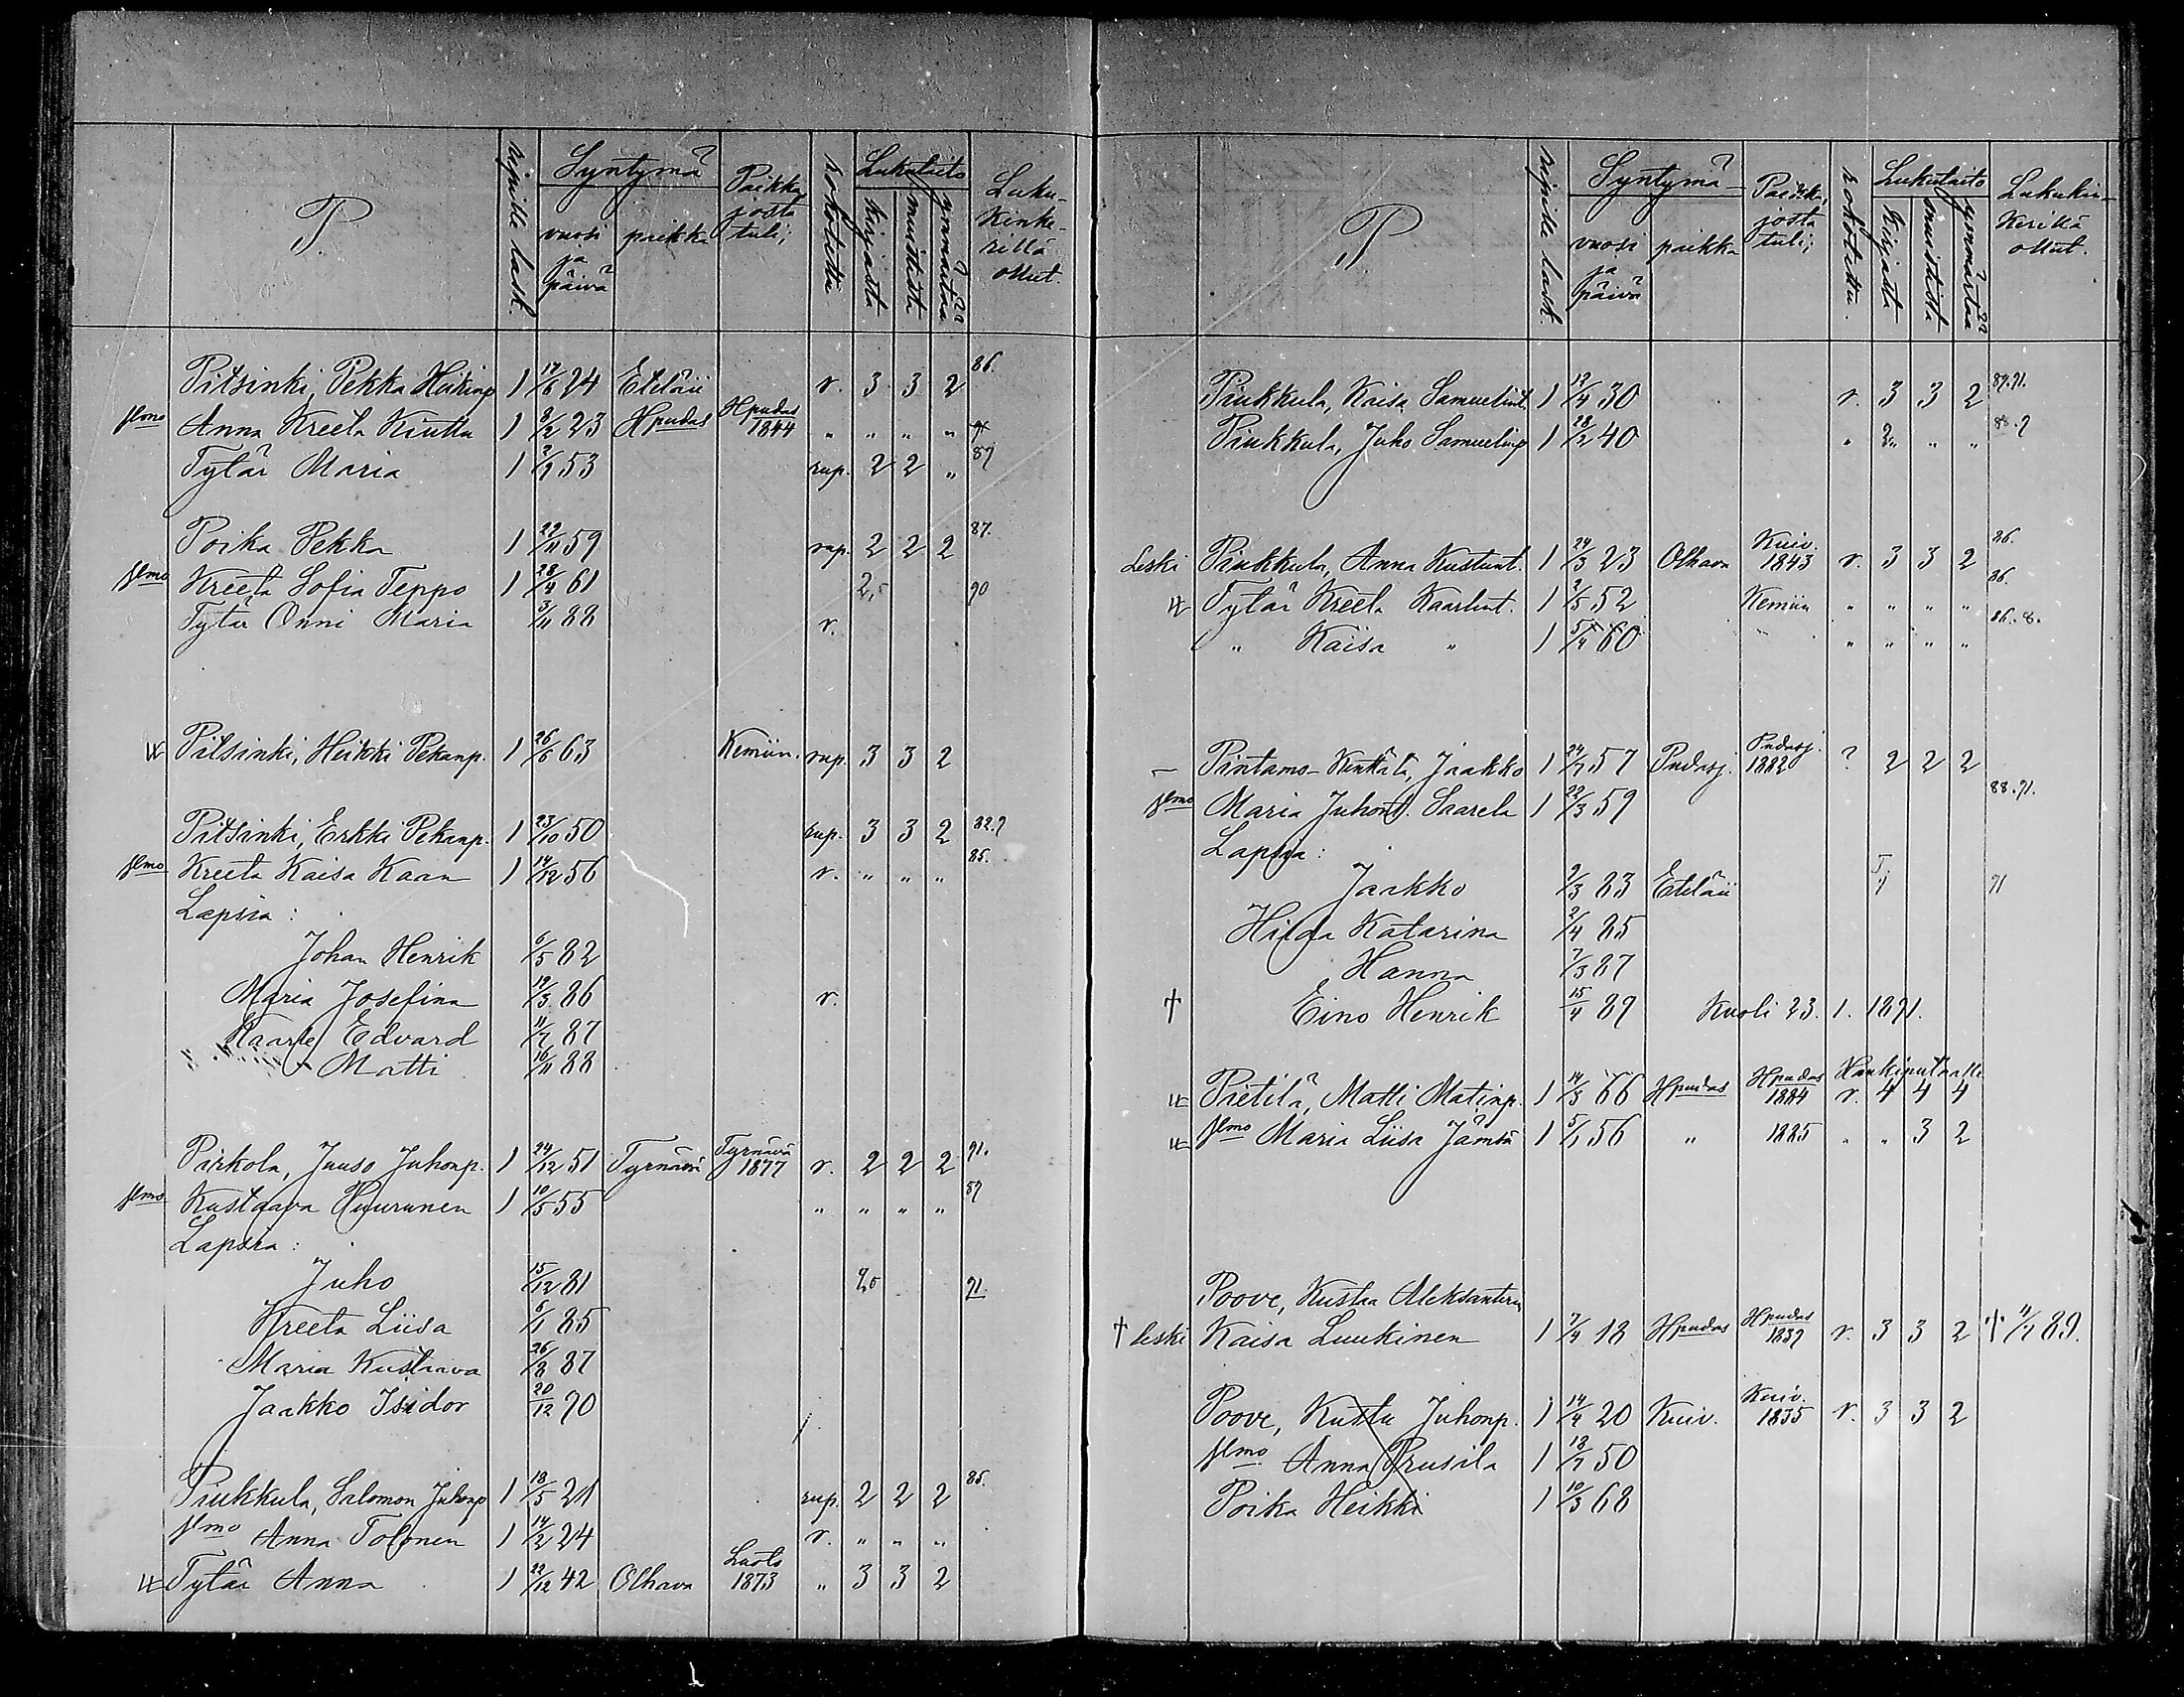 P.
ripille lask.
Syntymä
vuosi ja päivä
paikka
Paikka, josta tuli;
rokotettu
Lukutaito
kirjasta
muistista
ymmärtää
Luku-
kinke-
rillä
ollut.
Pitsinki, Pekka Heikinp 1 17/6 24 Eteläii r. 3 3 2 86.
Anna Kreeta Kiutta 1 8/2 23 Hpudas Hpudas 1844 " " " "
Tytär Maria 1 2/7 53 rup. 2 2 " 87
Poika Pekka 1 22/11 59 rup. 2 2 2 87.
Kreeta Sofia Teppo 1 28/4 61 2,5 90
Tytär Onni Maria 3/11 88 r.
Pitsinki, Heikki Pekanp. 1 26/6 63 Kemiin. rup. 3 3 2
Pitsinki, Erkki Pekanp. 1 23/10 50 rup. 3 3 2 82.9
Kreeta Kaisa Kaan 1 14/12 56 r. " " " 85.
Lapsia:
Johan Henrik 6/5 82
Maria Josefina 19/3 86 r.
Kaarle Edvard 11/7 87
Matti 16/11 88
Pirkola, Juuso Juhonp. 1 24/12 51 Tyrnävä Tyrnävä 1877 r. 2 2 2 91.
Kustaava Huurunen 1 10/5 55 " " " " 89
Lapsia:
Juho 15/12 81 91.
Kreeta Liisa 6/1 85
Maria Kustaava 26/8 87
Jaakko Isidor 20/12 90
Piukkula, Salomon Juhonp 1 18/5 21 rup. 2 2 2 85.
Anna Tolonen 1 14/2 24 r. " " "
Tytär Anna 1 22/12 42 Olhava Luoto 1873 " 3 3 2
P
ripille lask.
Syntymä-
vuosi ja päivä
paikka
Paikka, josta tuli;
rokotettu.
Lukutaito
kirjasta
muistista
ymmärtää
Lukukin-
kerillä
ollut.
Piukkula, Kaisa Samuelint. 1 12/4 30 r. 3 3 2 87.91.
Piukkula, Juho Samuelinp 1 28/2 40 " 2 " "
Leski Piukkula, Anna Kustunt. 1 24/3 23 Olhava Kuiv. 1843 r. 3 3 2 86.
Tytär Kreeta Kaarlent. 1 2/5 52 Kemiin " " " " 86.
" Kaisa " 1 5/4 60 " " " " 86.8.
Pintamo-Kenttälä, Jaakko 1 24/7 57 Pudasj. Pudasj. 1882 ? 2 2 2
Maria Juhont. Saarela 1 22/3 59 88.91.
Lapsia:
Jaakko 9/3 83 Eteläii 91
Hilda Katarina 2/4 85
Hanna 7/3 87
† Eino Henrik 15/4 89 Kuoli 23. 1. 1891.
Haukiputaalle
Pietilä, Matti Matinp. 1 14/3 66 Hpudas Hpudas 1884 r. 4 4 4
Maria Liisa Jämsä 1 5/1 56 " 1885 " " 3 2
Poove, Kustaa Aleksanterin
† leski Kaisa Luukinen 1 7/4 18 Hpudas Hpudas 1839 r. 3 3 2 † 11/7 89.
Poove, Kustu Juhonp. 1 14/4 20 Kuiv. Kuiv. 1835 r. 3 3 2
Anna Prusila 1 18/7 50
Poika Heikki 1 10/3 68